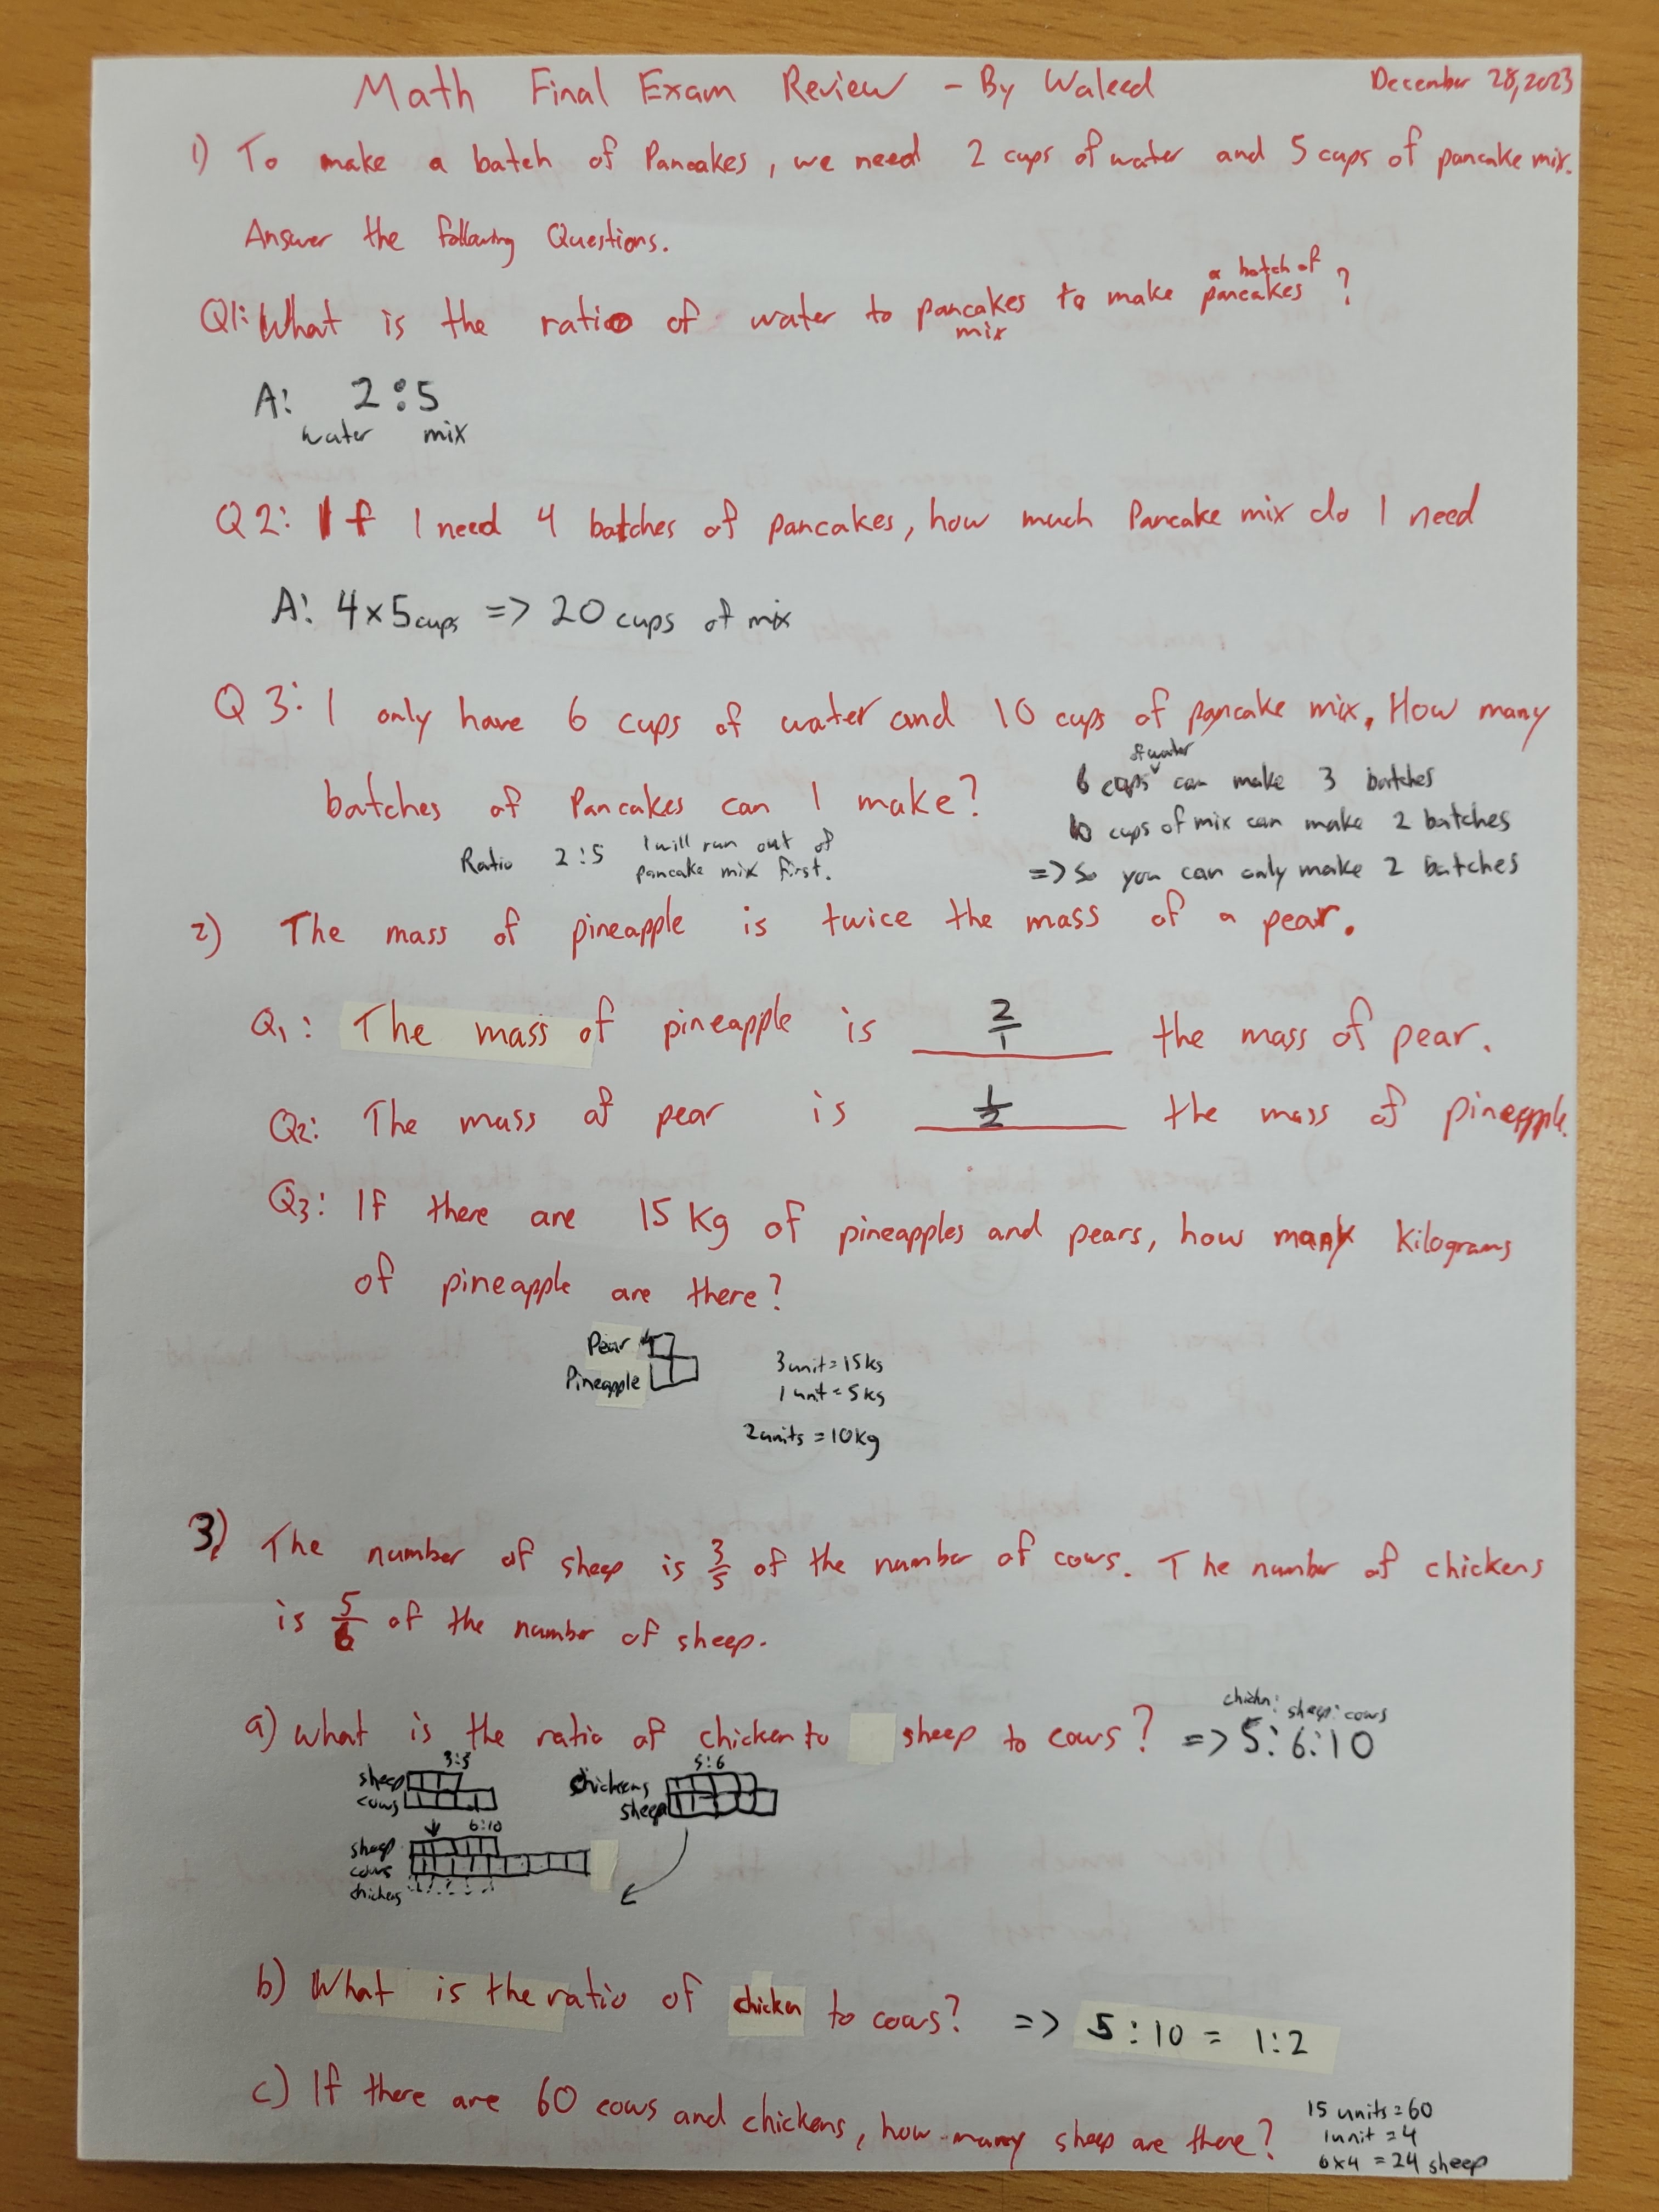 Math Final Exam Review - By Waleed December 28, 2023
1) To make a batch of Pancakes, we need 2 cups of water and 5 cups of pancake mix.
Answer the following Questions.
Q1: What is the ratio of water to pancakes mix to make a batch of pancakes ?
A: 2:5
water mix
Q2: If I need 4 batches of pancakes, how much Pancake mix do I need
A: 4x5 cups => 20 cups of mix
Q3: I only have 6 cups of water and 10 cups of pancake mix. How many
batches of Pancakes can I make?
Ratio 2:5 I will run out of
pancake mix first.
6 cups of water can make 3 batches
10 cups of mix can make 2 batches
=> So you can only make 2 batches
2) The mass of pineapple is twice the mass of a pear.
Q1: The mass of pineapple is 2/1 the mass of pear.
Q2: The mass of pear is 1/2 the mass of pineapple.
Q3: If there are 15 Kg of pineapples and pears, how many kilograms
of pineapple are there?
Pear
Pineapple
3 unit = 15 kg
1 unit = 5 kg
2 units = 10 kg
3) The number of sheep is 3/5 of the number of cows. The number of chickens
is 5/6 of the number of sheep.
a) What is the ratio of chicken to sheep to cows? => 5:6:10
chickn: sheep: cows
3:5
sheep
cows
5:6
chickens
sheep
6:10
sheep
cows
chickens
b) What is the ratio of chicken to cows? => 5:10 = 1:2
c) If there are 60 cows and chickens, how many sheep are there?
15 units = 60
1 unit = 4
6x4 = 24 sheep